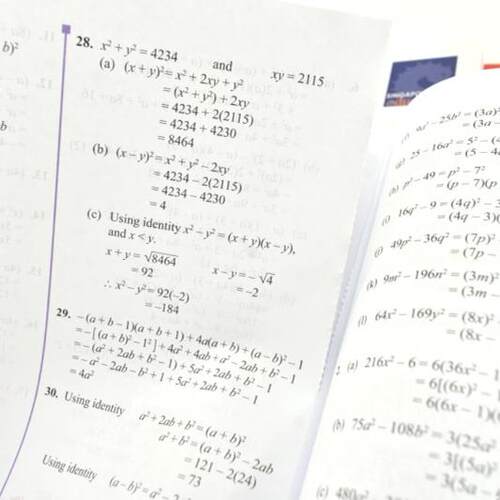 b)²
b
28. x² + y² = 4234 and xy = 2115
(a) (x + y)² = x² + 2xy + y²
= (x² + y²) + 2xy
= 4234 + 2(2115)
= 4234 + 4230
= 8464
(b) (x – y)² = x² + y² – 2xy
= 4234 – 2(2115)
= 4234 – 4230
= 4
(c) Using identity x² – y² = (x + y)(x – y),
and x < y.
x + y = √8464 x – y = – √4
= 92 = –2
∴ x² – y² = 92(–2)
= –184
29. –(a + b – 1)(a + b + 1) + 4a(a + b) + (a – b)² – 1
= –[(a + b)² – 1²] + 4a² + 4ab + a² – 2ab + b² – 1
= –(a² + 2ab + b² – 1) + 5a² + 2ab + b² – 1
= –a² – 2ab – b² + 1 + 5a² + 2ab + b² – 1
= 4a²
30. Using identity a² + 2ab + b² = (a + b)²
a² + b² = (a + b)² – 2ab
= 121 – 2(24)
= 73
Using identity (a – b)² = a² –
SINGAPO
– 25b² = (3a)²
= (3a –
25 – 16a² = 5² – (4
= (5 – 4
(h) p² – 49 = p² – 7²
= (p – 7)(p
(i) 16q² – 9 = (4q)² – 3
= (4q – 3)(
(j) 49p² – 36q² = (7p)²
= (7p –
(k) 9m² – 196n² = (3m)²
= (3m
(l) 64x² – 169y² = (8x)²
= (8x –
(a) 216x² – 6 = 6(36x² – 1
= 6[(6x)² – 1
= 6(6x – 1)(
(b) 75a² – 108b² = 3(25a²
= 3[(5a)²
= 3(5a –
(c) 480